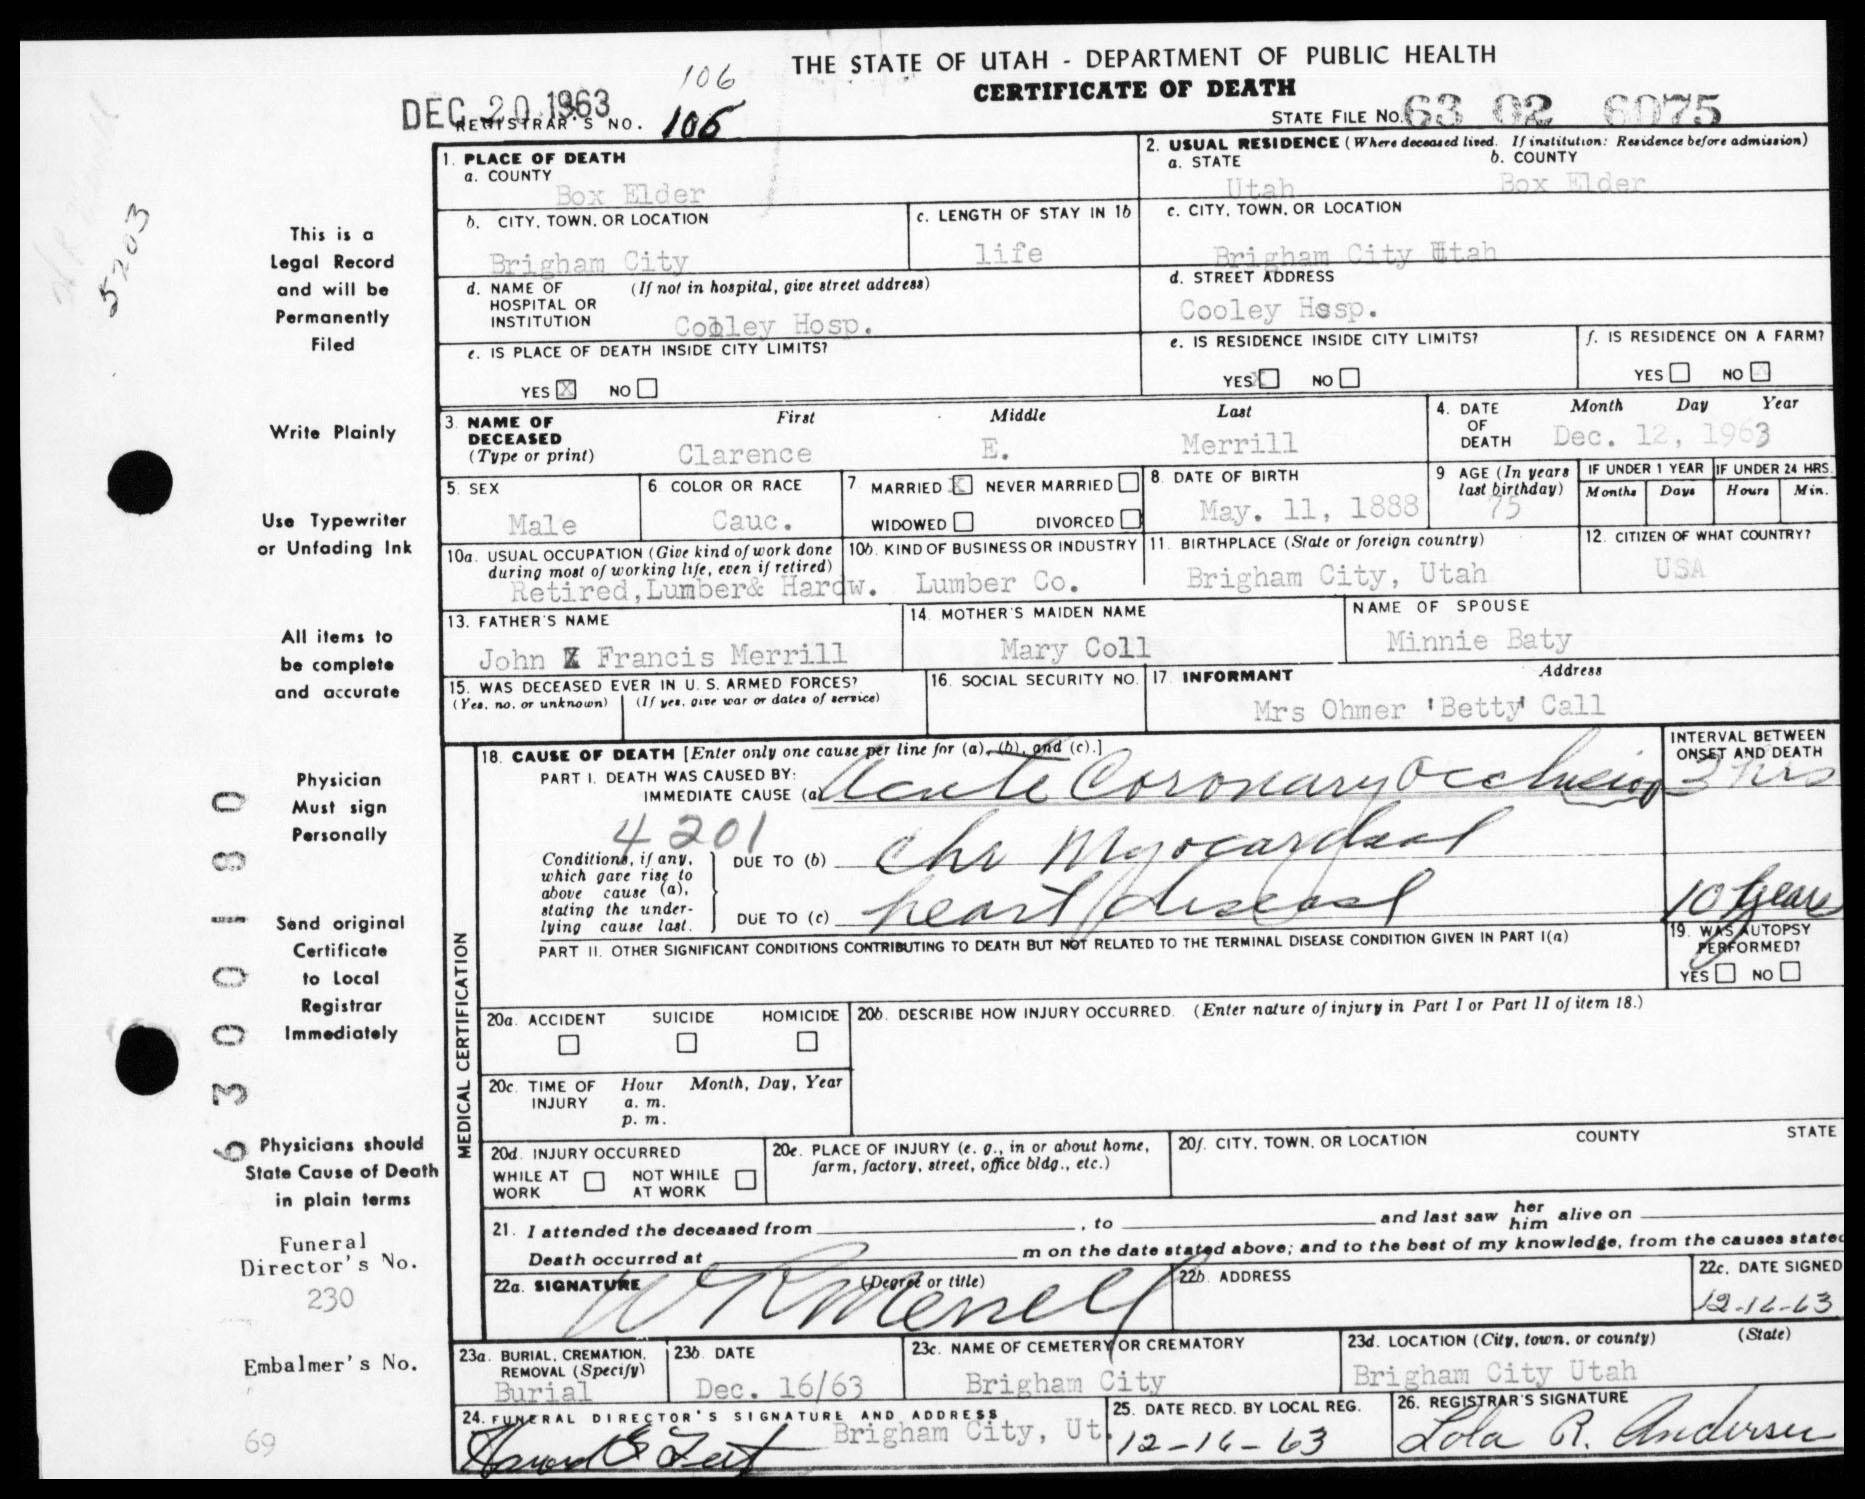 THE STATE OF UTAH - DEPARTMENT OF PUBLIC HEALTH
106
CERTIFICATE OF DEATH
DEC 20 1963
REGISTRAR'S NO. 106
STATE FILE NO. 63 02 6075
1. PLACE OF DEATH
a. COUNTY
Box Elder
2. USUAL RESIDENCE (Where deceased lived. If institution: Residence before admission)
a. STATE
Utah
b. COUNTY
Box Elder
b. CITY, TOWN, OR LOCATION
Brigham City
c. LENGTH OF STAY IN 1b
life
c. CITY, TOWN, OR LOCATION
Brigham City Utah
d. NAME OF HOSPITAL OR INSTITUTION
(If not in hospital, give street address)
Cooley Hosp.
d. STREET ADDRESS
Cooley Hosp.
e. IS PLACE OF DEATH INSIDE CITY LIMITS?
YES X NO
e. IS RESIDENCE INSIDE CITY LIMITS?
YES X NO
f. IS RESIDENCE ON A FARM?
YES NO X
3. NAME OF DECEASED (Type or print)
First Middle Last
Clarence E. Merrill
4. DATE OF DEATH
Month Day Year
Dec. 12, 1963
5. SEX
Male
6. COLOR OR RACE
Cauc.
7. MARRIED X NEVER MARRIED
WIDOWED DIVORCED
8. DATE OF BIRTH
May. 11, 1888
9 AGE (In years last birthday)
75
IF UNDER 1 YEAR
Months Days
IF UNDER 24 HRS.
Hours Min.
10a. USUAL OCCUPATION (Give kind of work done during most of working life, even if retired)
Retired,Lumber& Hardw.
10b. KIND OF BUSINESS OR INDUSTRY
Lumber Co.
11. BIRTHPLACE (State or foreign country)
Brigham City, Utah
12. CITIZEN OF WHAT COUNTRY?
USA
13. FATHER'S NAME
John Francis Merrill
14. MOTHER'S MAIDEN NAME
Mary Coll
NAME OF SPOUSE
Minnie Baty
15. WAS DECEASED EVER IN U. S. ARMED FORCES?
(Yes, no, or unknown) (If yes, give war or dates of service)
16. SOCIAL SECURITY NO.
17. INFORMANT Address
Mrs Ohmer 'Betty' Call
18. CAUSE OF DEATH [Enter only one cause per line for (a), (b), and (c).]
INTERVAL BETWEEN ONSET AND DEATH
PART I. DEATH WAS CAUSED BY:
IMMEDIATE CAUSE (a) Acute Coronary Occlusion 3 hrs
4201
Conditions, if any, which gave rise to above cause (a), stating the underlying cause last.
DUE TO (b) Chr Myocardial
DUE TO (c) heart disease 10 years
PART II. OTHER SIGNIFICANT CONDITIONS CONTRIBUTING TO DEATH BUT NOT RELATED TO THE TERMINAL DISEASE CONDITION GIVEN IN PART I(a)
19. WAS AUTOPSY PERFORMED?
YES NO
20a. ACCIDENT SUICIDE HOMICIDE
20b. DESCRIBE HOW INJURY OCCURRED. (Enter nature of injury in Part I or Part II of item 18.)
20c. TIME OF INJURY Hour Month, Day, Year
a. m.
p. m.
20d. INJURY OCCURRED
WHILE AT WORK NOT WHILE AT WORK
20e. PLACE OF INJURY (e. g., in or about home, farm, factory, street, office bldg., etc.)
20f. CITY, TOWN, OR LOCATION COUNTY STATE
21. I attended the deceased from , to and last saw her him alive on
Death occurred at m on the date stated above; and to the best of my knowledge, from the causes stated
22a. SIGNATURE (Degree or title)
W R Merrell
22b. ADDRESS
22c. DATE SIGNED
12-16-63
23a. BURIAL, CREMATION, REMOVAL (Specify)
Burial
23b. DATE
Dec. 16/63
23c. NAME OF CEMETERY OR CREMATORY
Brigham City
23d. LOCATION (City, town, or county) (State)
Brigham City Utah
24. FUNERAL DIRECTOR'S SIGNATURE AND ADDRESS
Brigham City, Ut.
25. DATE RECD. BY LOCAL REG.
12-16-63
26. REGISTRAR'S SIGNATURE
Lola R. Andersen
MEDICAL CERTIFICATION
5203
This is a
Legal Record
and will be
Permanently
Filed
Write Plainly
Use Typewriter
or Unfading Ink
All items to
be complete
and accurate
Physician
Must sign
Personally
Send original
Certificate
to Local
Registrar
Immediately
Physicians should
State Cause of Death
in plain terms
6300180
Funeral
Director's No.
230
Embalmer's No.
69